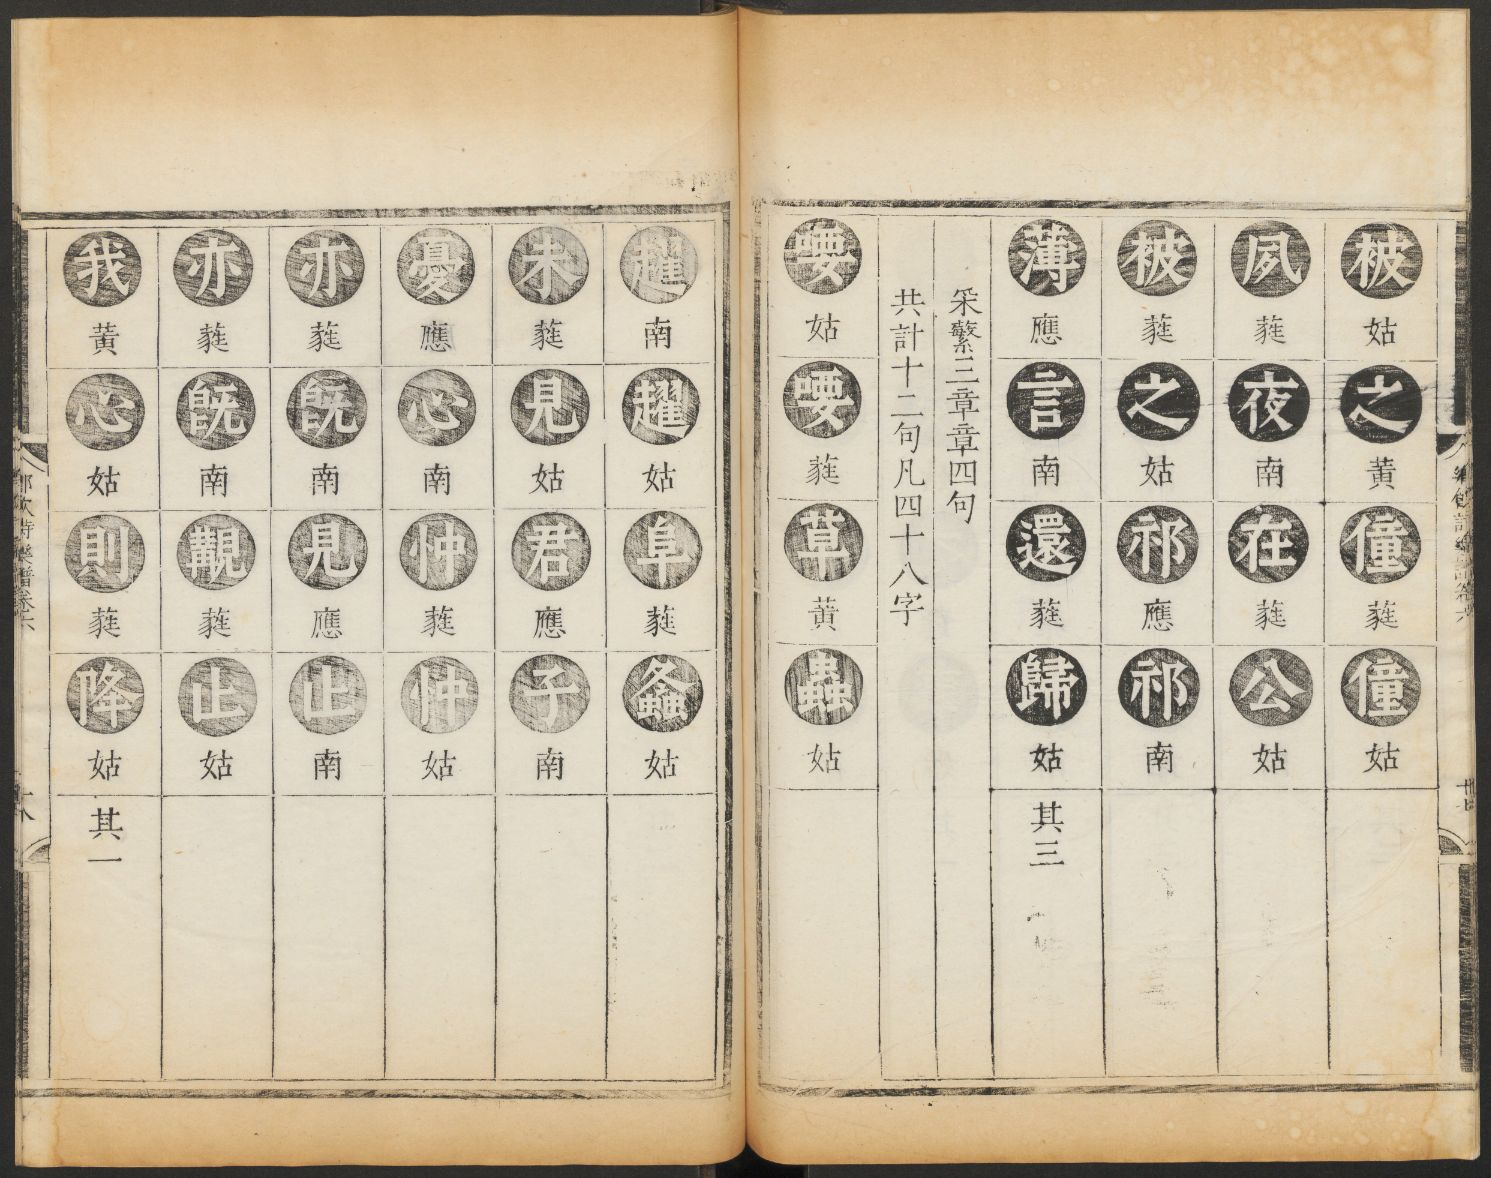 被姑之黃僮蕤僮姑
夙蕤夜南在蕤公姑
被蕤之姑祁應祁南
薄應言南還蕤歸姑其三
采蘩三章章四句
共計十二句凡四十八字
喓姑喓蕤草黃蟲姑
趯南趯姑阜蕤螽姑
未蕤見姑君應子南
憂應心南忡蕤忡姑
亦蕤既南見應止南
亦蕤既南覯蕤止姑
我黃心姑則蕤降姑其一
鄉飲詩樂譜卷六